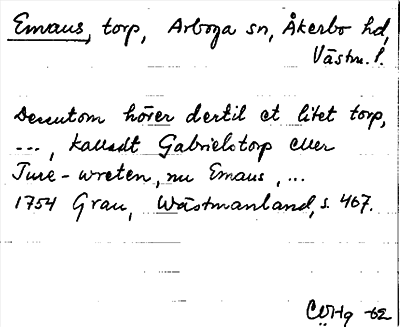 Emaus, torp, Arboga sn, Åkerbo hd,
Västm. l.
Dessutom hörer dertil et litet torp,
..., kalladt Gabrielstorp eller
Ture-wreten, nu Emaus, ...
1754 Grau, Wästmanland, s. 467.
-62